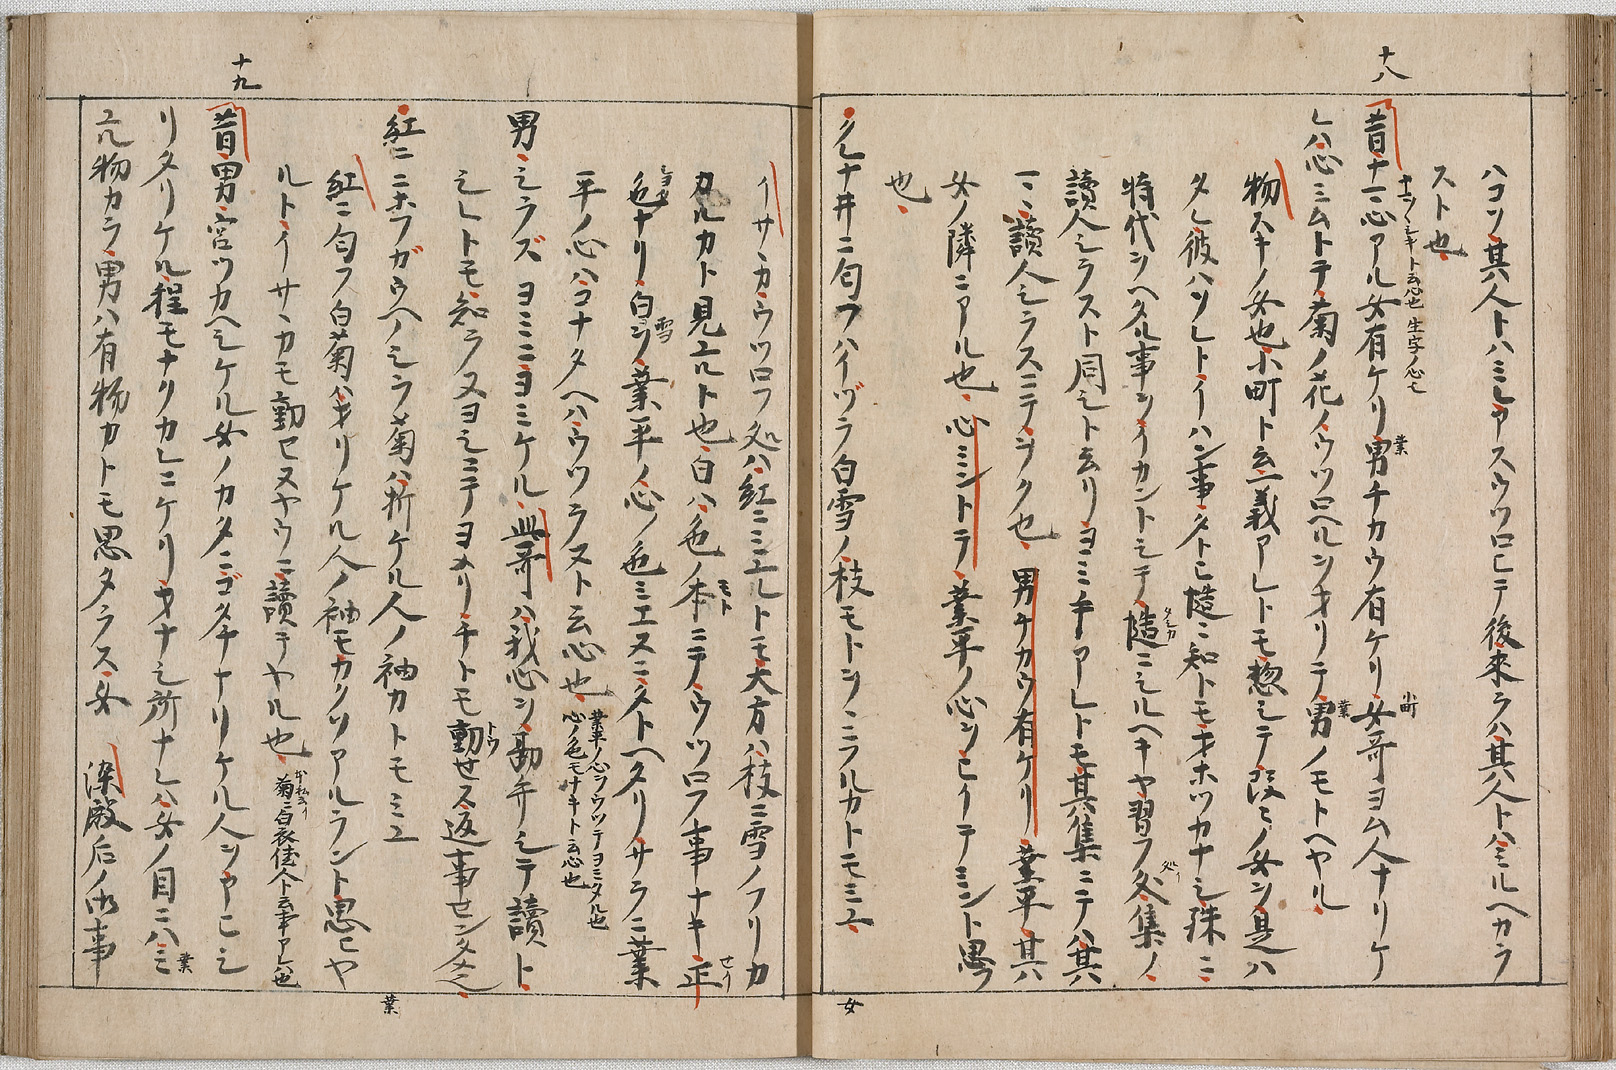 十八
ハコソ其人トハミヒアスウツロヒテ後来ラハ其人トハミルヘカラ
スト也
昔ナマ心アル女有ケリ男チカウ有ケリ女哥ヨム人ナリケ
ナマシキト云心也 生字ノ心モ
業
小町
レハ心ミムトテ菊ノ花ノウツロヘルヲオリテ男ノモトヘヤル
業
物スキノ女也小町ト云義アレトモ惣シテ段ミノ女ヲ是ハ
タレ彼ハソレトイハン事タトヒ慥ニ知トモオホツカナシ殊ニ
時代ヲヘタル事ヲイカントシテ慥ニシルヘキヤ習フ処集ノ
タシカ
讀人シラスト同シト云リヨミ手アレトモ其集ニテハ其
マヽ讀人シラスニテヲク也 男チカウ有ケリ 業平其ハ
女ノ隣ニアル也 心ミントテ 業平ノ心ヲヒイテミント思フ
也
クレナ井ニ匂フハイヅラ白雪ノ枝モトヲヽニフルカトモミユ
女
イサヽカウツロフ処ハ紅ニミエルトモ大方ハ枝ニ雪ノフリカ
カルカト見エルト也白ハ色ノ本ニテウツロフ事ナキ正
モト
せイ
色ナリ白ヲ業平ノ心ノ色ミエスニタトヘタリサラニ業
シヨク
雪
平ノ心ハコナタヘハウツラスト云心也
業平ノ心ラウツテヨミタル也
心ノ色モナキト云心也
男シラズヨミニヨミケル 此哥ハ我心ヲ勘弁シテ讀ト
シレトモ知ラヌヨシニテヨメリチトモ動せス返事セシタメ也
トウ
紅ニニホフガウヘノシラ菊ハ折ケル人ノ袖カトモミユ
業
紅ニ匂フ白菊ハオリケル人ノ袖モカクソアルラント思ヒヤ
ルトイサヽカモ動セヌヤウニ讀テヤル也
菊ニ白衣佳人ト云事アレハ也
十九
昔男宮ツカヘシケル女ノカタニゴタチナリケル人ヲアヒシ
リタリケル程モナリカレニケリオナシ所ナレハ女ノ目ニハミ
業
エル物カラ男ハ有物カトモ思タラス女 染殿后ノ御事